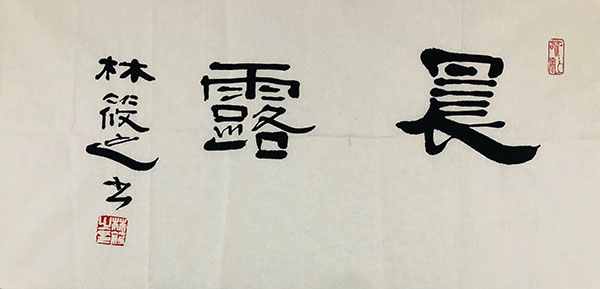 晨露
林筱之书